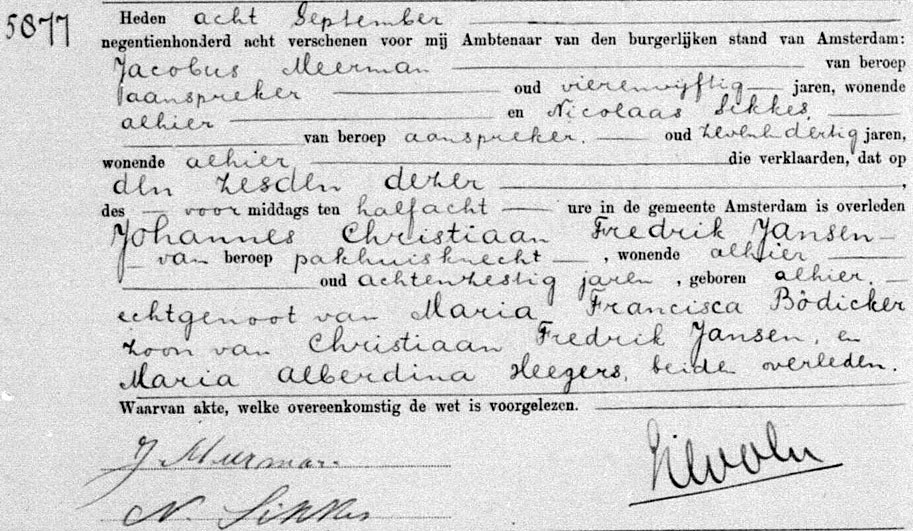 5877
Heden acht September
negentienhonderd acht verschenen voor mij Ambtenaar van den burgerlijken stand van Amsterdam:
Jacobus Meerman van beroep
aanspreker oud vierenvijftig jaren, wonende
alhier en Nicolaas Sikkes,
van beroep aanspreker, oud zevenendertig jaren,
wonende alhier, die verklaarden, dat op
den zesden dezer,
des voormiddags ten half acht ure in de gemeente Amsterdam is overleden
Johannes Christiaan Fredrik Jansen
van beroep pakhuisknecht, wonende alhier
oud achtenzestig jaren, geboren alhier,
echtgenoot van Maria Francisca Bödicker
zoon van Christiaan Fredrik Jansen, en
Maria Alberdina Heegers, beide overleden.
Waarvan akte, welke overeenkomstig de wet is voorgelezen.
J Meerman.
N. Sikkes